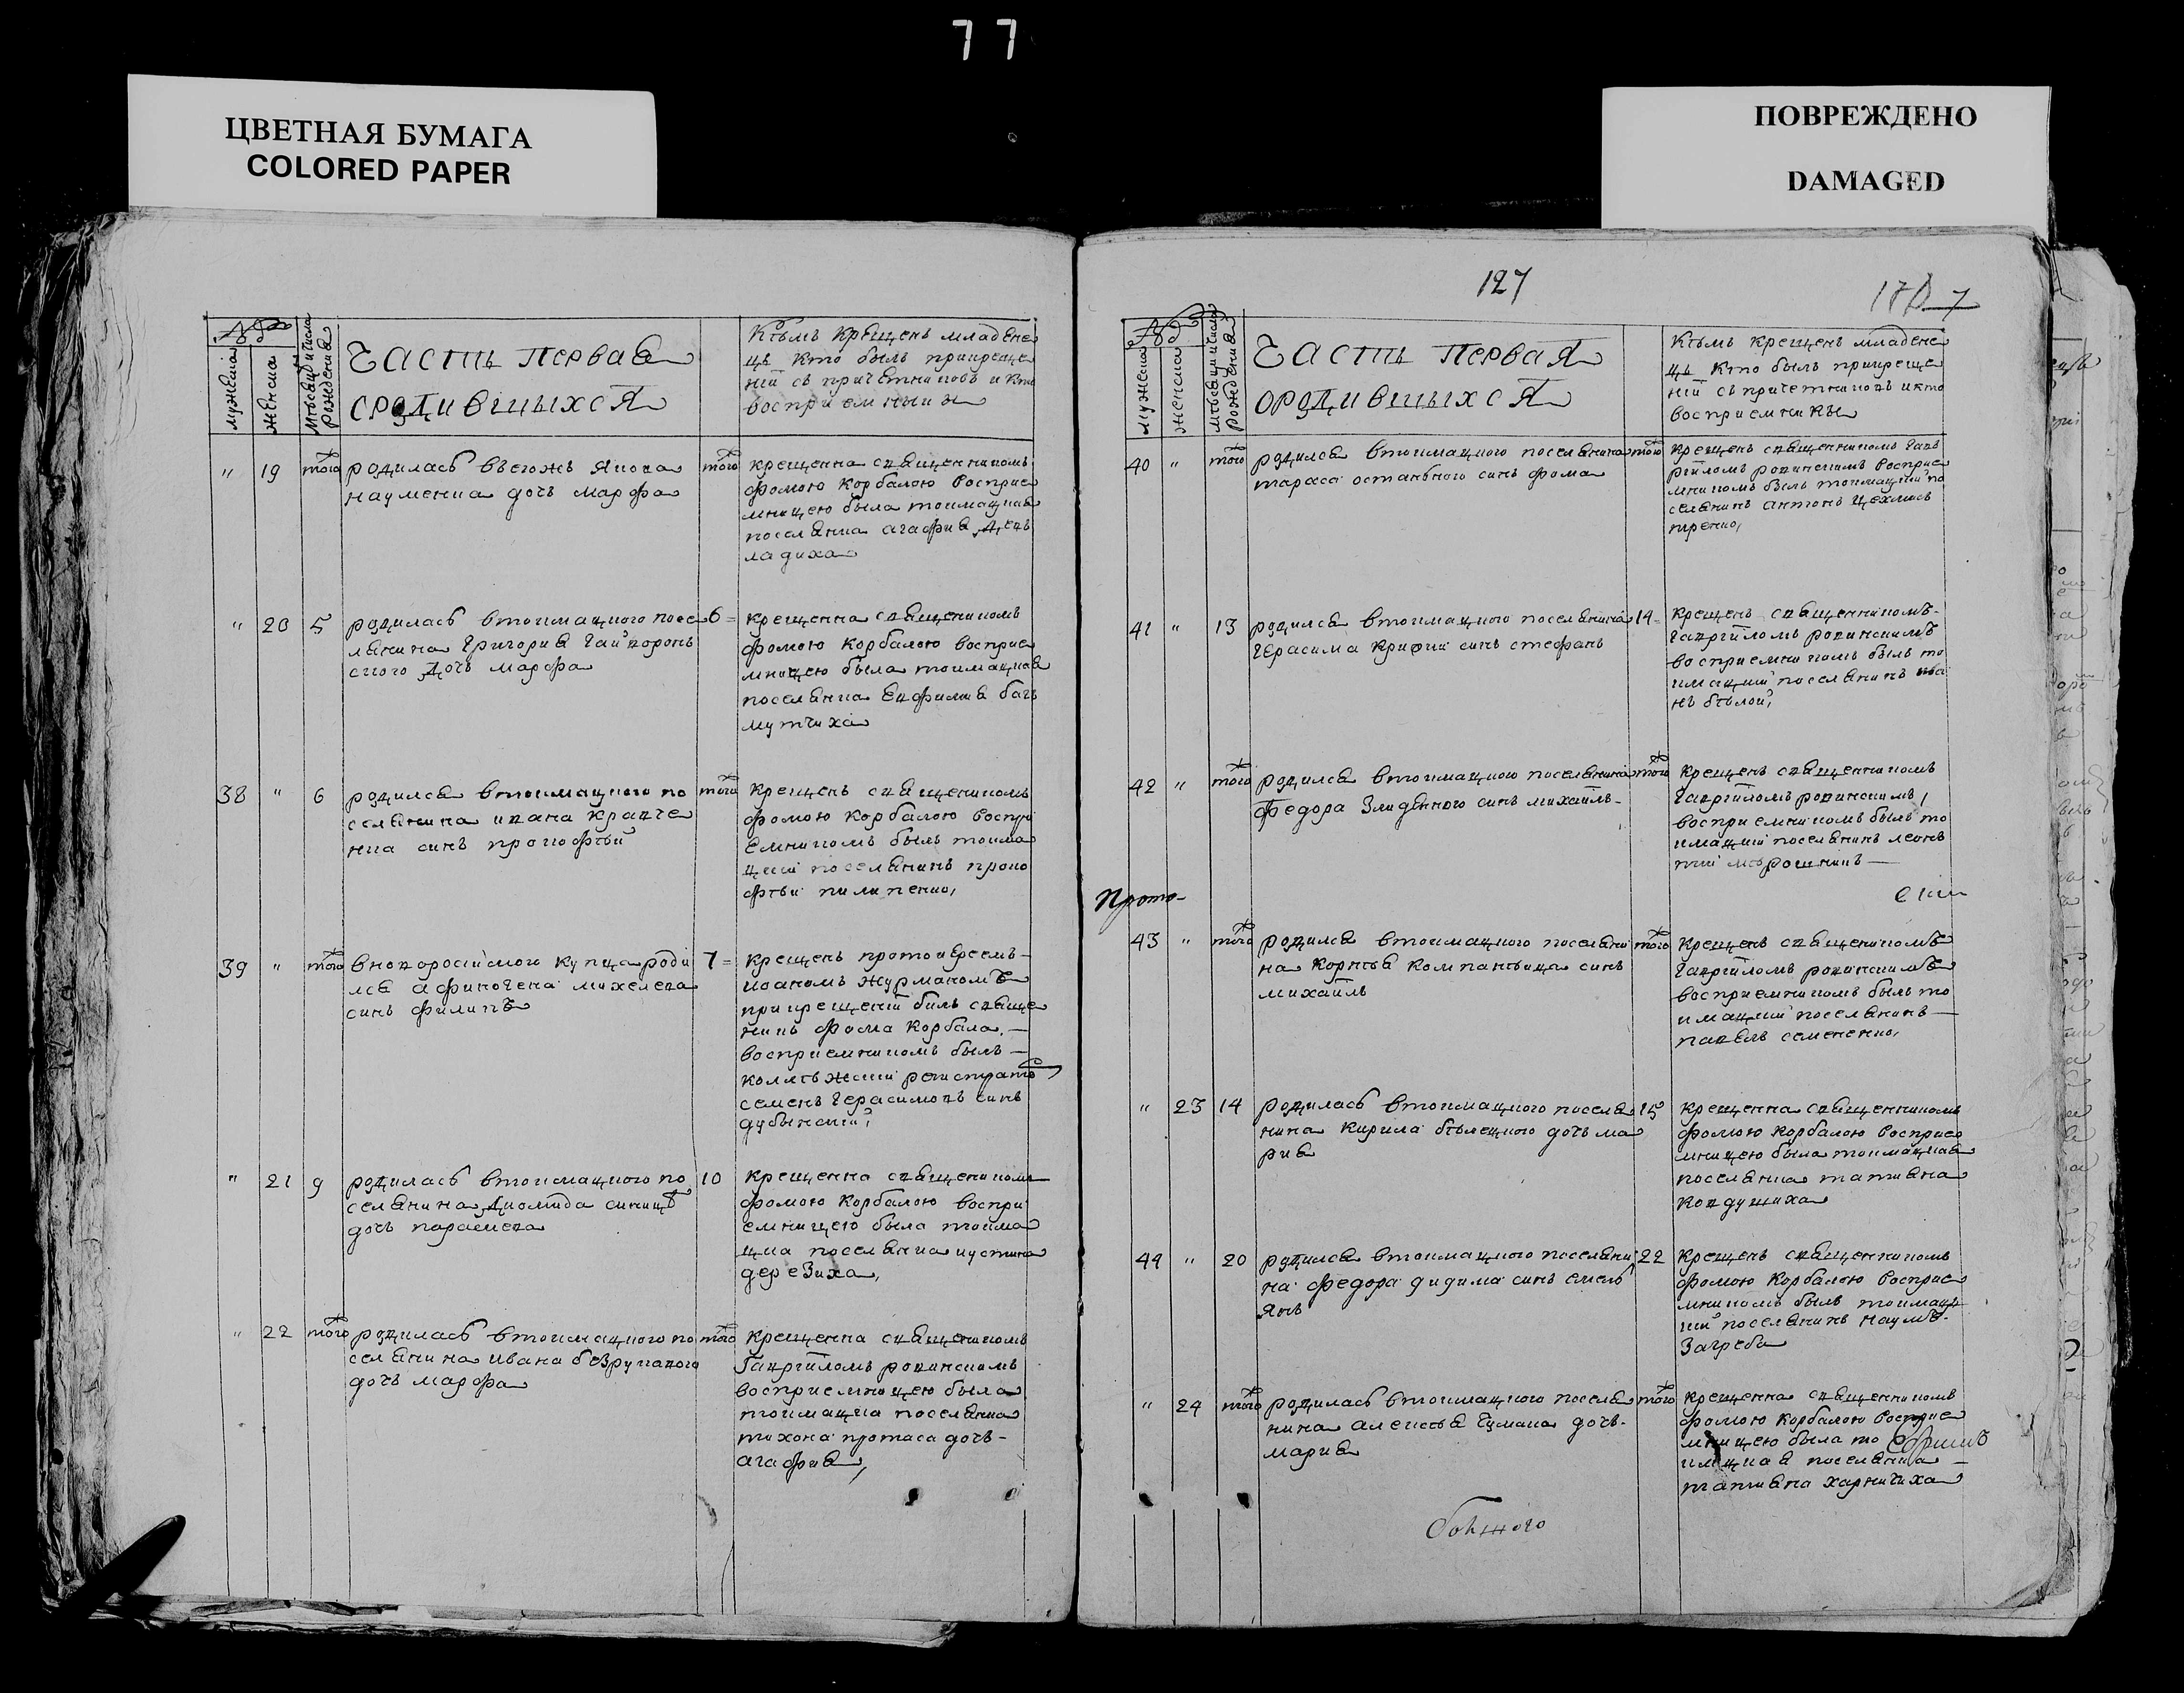 77
ЦВЕТНАЯ БУМАГА
COLORED PAPER
ПОВРЕЖДЕНО
DAMAGED
127
мужеска
женска
Часть первая
ородившыхся
Кѣмъ крещенъ младене
цъ кто былъ прикреще
ніи съ причетниковъ и кто
восприемники
" 19 того родилась въегожъ якова того
науменка дочъ марфа
крещенна священникомъ
фомою Корбалою восприе
мницею была тоимацкая
поселянка агафия
ладиха
" 20 5 родилась втоимацкого посе 6
лянина Григория
ского дочъ марфа
крещенна священикомъ
фомою Корбалою восприе
мницею была тоимацкая
поселянка Евфимия бах
мутчиха
38 " 6 родился втоимацкого по того
селянина ивана кравче
нка синъ прокофѣй
крещенъ священикомъ
фомою Корбалою воспри
емникомъ былъ тоима
цкій поселянинъ проко
фѣй пилипенко,
39 " того вновороссійского купца роди 7
лся афиногена михелева
синъ филипъ
крещенъ протоиереемъ
иоаномъ журманомъ
прикрещеніи билъ свяще
никъ фома Корбала
восприемникомъ былъ
коллѣжскій регистрато
семенъ герасимовъ синъ
дубинскій
" 21 9 родилась втоимацкого по 10
селянина диомида синицѣ
дочъ параскева
крещенна священикомъ
фомою Корбалою воспри
емницею была тоима
цка поселянка иустина
дерезиха,
" 22 того родилась втоимацкого по того
селянина ивана безрукавого
дочъ марфа
крещенна священикомъ
Гавріиломъ ровинскимъ
восприемницею была
тоимацка поселянка
тихона протаса дочъ
агафия,
мужеска
женска
Часть первая
ородившыхся
Кѣмъ крещенъ младене
цъ кто былъ прикреще
ніи съ причетниковъ икто
восприемники
40 " того родился втоимацкого поселянина того
тараса остапного синъ фома
крещенъ священникомъ гав
ріиломъ ровинскимъ восприе
мникомъ былъ тоимацкій по
селянинъ антонъ цехмис
тренко,
41 " 13 родился втоимацкого поселянина 14
герасима синъ стефанъ
крещенъ священникомъ
гавріиломъ ровинскимъ
восприемникомъ былъ то
имацкій поселянинъ ива
нъ бѣлой,
42 " того родился втоимацкого поселянина того
Федора Злиденного синъ михаилъ
крещенъ священникомъ
Гавріиломъ ровинскимъ,
восприемникомъ былъ то
имацкій поселянинъ леон
тій мѣрошникъ
Прото-
43 " того родился втоимацкого поселяни того
на Корнѣя Компанѣйца синъ
михаилъ
крещенъ священикомъ
гавріиломъ ровинскимъ
восприемникомъ былъ то
имацкій поселянинъ
павелъ семененко,
" 23 14 родилась втоимацкого поселя 15
нина Кирила бѣлецкого дочъ ма
рия
крещенна священникомъ
фомою Корбалою восприе
мницею была тоимацкая
поселянка татияна
Кандушиха
44 " 20 родился втоимацкого поселяни 22
на федора дидима синъ емель
янъ
крещенъ священникомъ
фомою Корбалою восприе
мникомъ былъ тоимац
кій поселянинъ наумъ
Загреба
" 24 того родилась втоимацкого поселя того
нина алексѣя Цимана дочъ
мария
крещенна священникомъ
фомою Корбалою восприе
мницею была то
имацкая поселянка
татияна харничиха